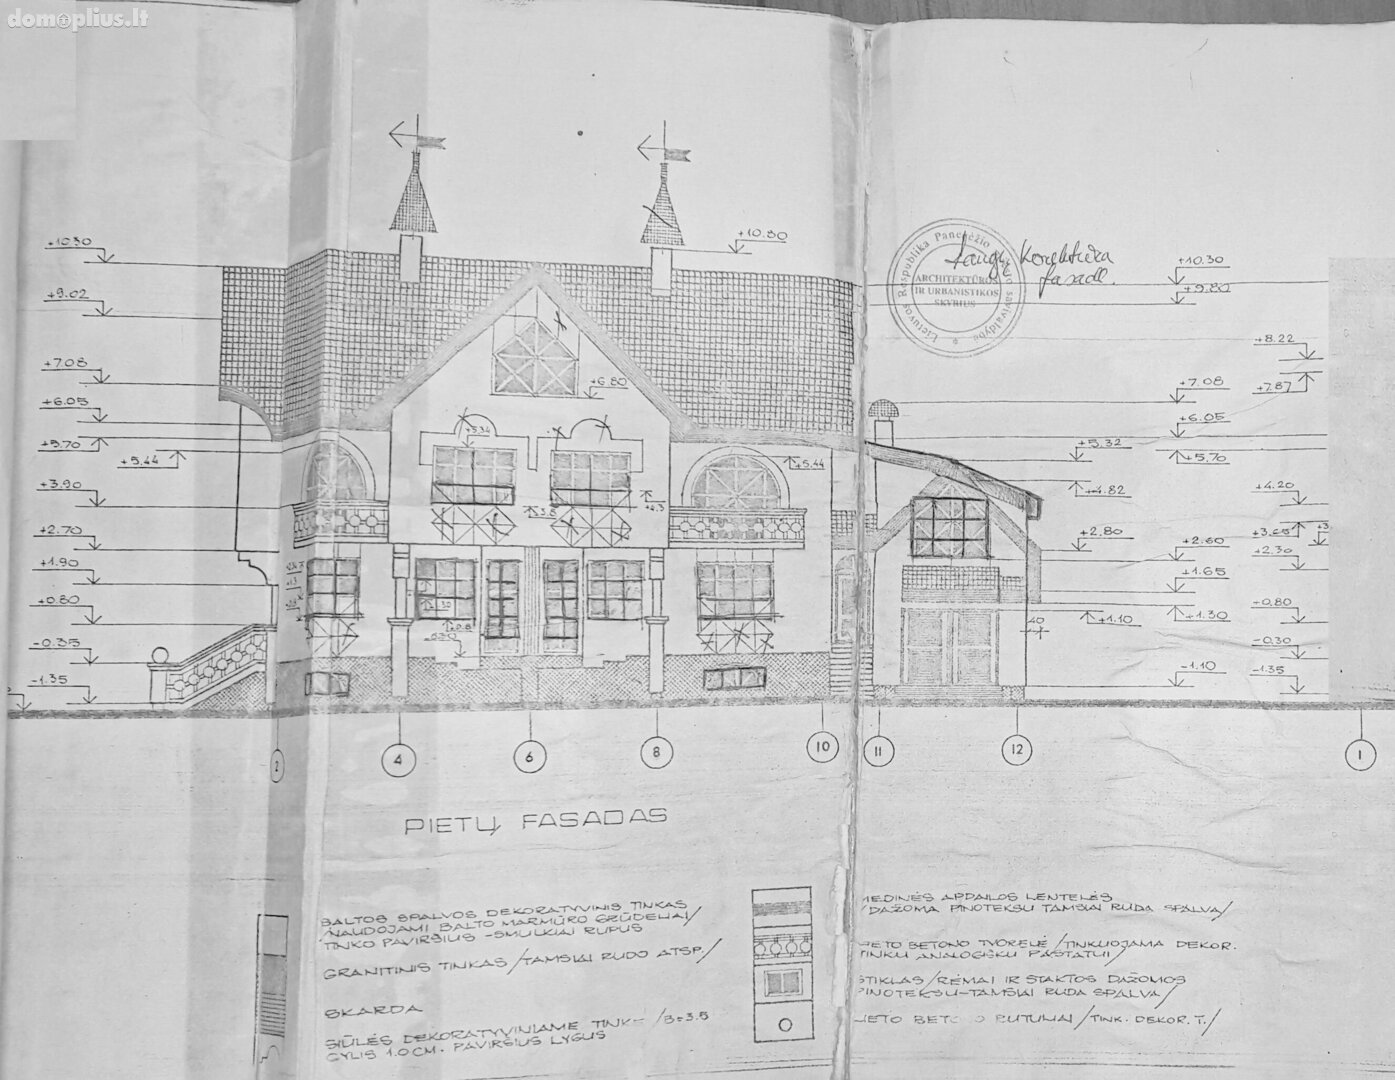 domoplius.lt
+10.30
+9.02
+7.08
+6.05
+5.70
+5.44
+3.90
+2.70
+1.90
+0.80
-0.35
-1.35
+10.80
+6.80
+5.34
+5.44
+4.3
+3.8
Lietuvos Respublika Panevėžio savivaldybė
ARCHITEKTŪROS
IR URBANISTIKOS
SKYRIUS
fasado.
+10.30
+9.80
+8.22
+7.87
+7.08
+6.05
+5.70
+5.32
+4.82
+4.20
+2.80
+2.60
+3.65
+2.30
+1.65
+1.30
+1.10
+0.80
40
-0.30
-1.10
-1.35
2
4
6
8
10
11
12
1
PIETŲ FASADAS
BALTOS SPALVOS DEKORATYVINIS TINKAS
/NAUDOJAMI BALTO MARMŪRO GRŪDELIAI/
TINKO PAVIRŠIUS - SMULKIAI RUPUS
GRANITINIS TINKAS /TAMSIAI RUDO ATSP./
SKARDA
SIŪLĖS DEKORATYVINIAME TINKE /B=3.5
GYLIS 1.0 CM. PAVIRŠIUS LYGUS
MEDINĖS APDAILOS LENTELĖS
/DAŽOMA PINOTEKSU TAMSIAI RUDA SPALVA/
LIETO BETONO TVORELĖ /TINKUOJAMA DEKOR.
TINKU ANALOGIŠKU PASTATUI/
STIKLAS /RĖMAI IR STAKTOS DAŽOMOS
PINOTEKSU-TAMSIAI RUDA SPALVA/
LIETO BETONO RUTULIAI /TINK. DEKOR. T./